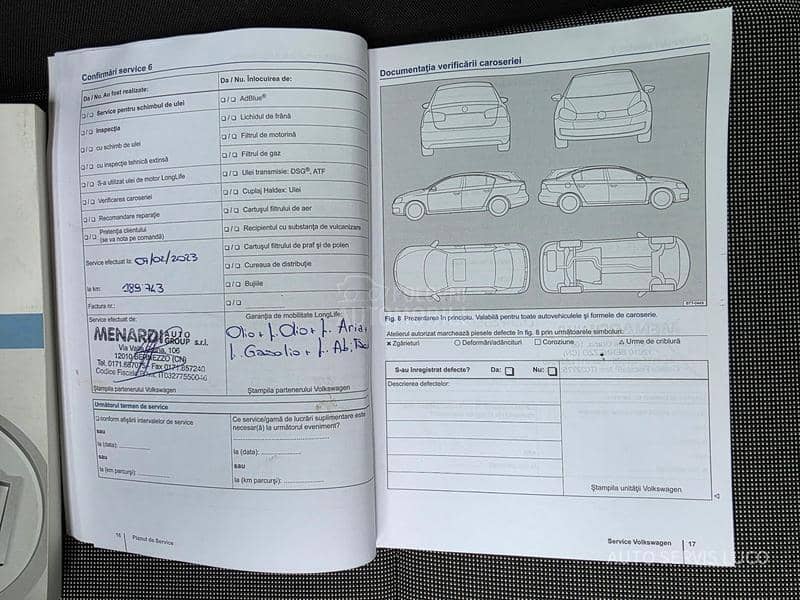 Confirmări service 6
Da / Nu. Au fost realizate:
❑ / ❑ Service pentru schimbul de ulei
❑ / ❑ Inspecţia
❑ / ❑ cu schimb de ulei
❑ / ❑ cu inspecţie tehnică extinsă
❑ / ❑ S-a utilizat ulei de motor LongLife
❑ / ❑ Verificarea caroseriei
❑ / ❑ Recomandare reparaţie
❑ / ❑ Pretenţia clientului
(se va nota pe comandă)
Service efectuat la: 07/02/2023
la km: 189 743
Factura nr.:
Service efectuat de:
MENARDI AUTO
GROUP s.r.l.
106
12010 BERNEZZO (CN)
Tel. 0171.687075 Fax 0171.857240
Codice Fiscale
Ştampila partenerului Volkswagen
Da / Nu. Înlocuirea de:
❑ / ❑ AdBlue®
❑ / ❑ Lichidul de frână
❑ / ❑ Filtrul de motorină
❑ / ❑ Filtrul de gaz
❑ / ❑ Ulei transmisie: DSG®, ATF
❑ / ❑ Cuplaj Haldex: Ulei
❑ / ❑ Cartuşul filtrului de aer
❑ / ❑ Recipientul cu substanţa de vulcanizare
❑ / ❑ Cartuşul filtrului de praf şi de polen
❑ / ❑ Cureaua de distribuţie
❑ / ❑ Bujiile
❑ / ❑
Garanţia de mobilitate LongLife:
Olio + f. Olio + f. Aria +
f. Gasolio + f. Ab.
Ştampila partenerului Volkswagen
Următorul termen de service
❑ conform afişării intervalelor de service
sau
la (data):
sau
la (km parcurşi):
Ce service/gamă de lucrări suplimentare este
necesar(ă) la următorul eveniment?
la (data):
sau
la (km parcurşi):
16 Planul de Service
Documentaţia verificării caroseriei
Fig. 8 Prezentarea în principiu. Valabilă pentru toate autovehiculele şi formele de caroserie.
Atelierul autorizat marchează piesele defecte în fig. 8 prin următoarele simboluri:
× Zgârieturi ○ Deformări/adâncituri □ Coroziune △ Urme de criblură
S-au înregistrat defecte? Da: ❑ Nu: ❑
Descrierea defectelor:
Ştampila unităţii Volkswagen
Service Volkswagen 17
AUTO SERVIS LUCO